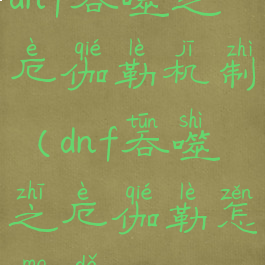 dnf吞噬之
è qié lè jī zhì
厄伽勒机制
tūn shì
(dnf吞噬
zhī è qié lè zěn
之厄伽勒怎
me dǎ